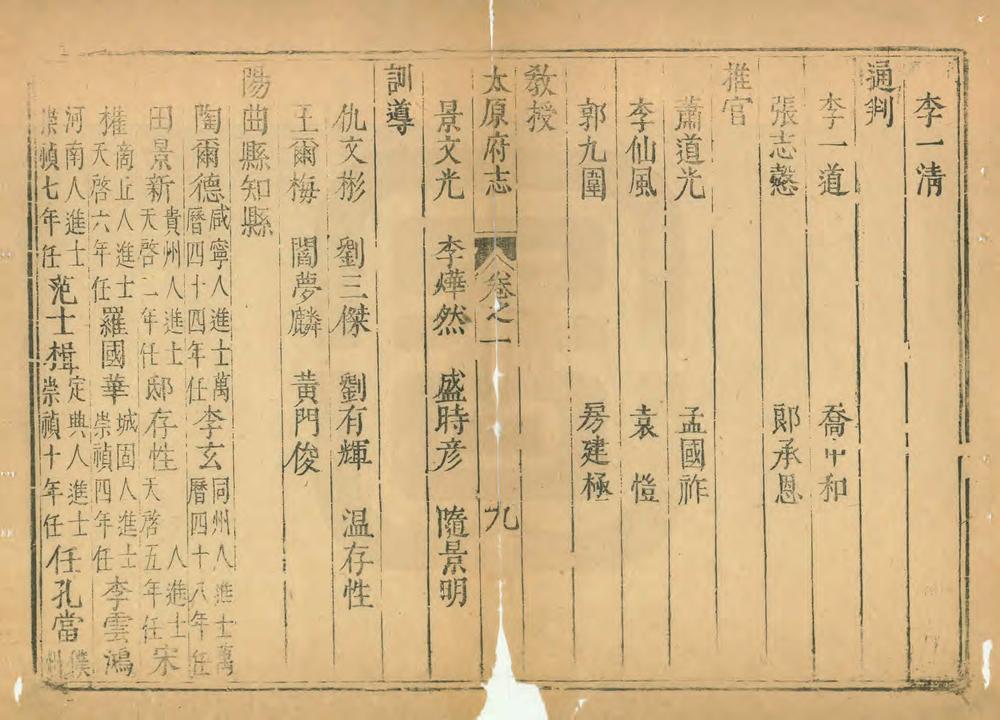 李一清
通判
李一道 喬中和
張志慤 郞承恩
推官
蕭道光 孟國祚
李仙風 袁愷
郭九圍 房建極
教授
太原府志 卷之一 九
景文光 李燁然 盛時彦 隨景明
訓導
仇文彬 劉三傑 劉有輝 温存性
王爾梅 閻夢麟 黃門俊
陽曲縣知縣
陶爾德 咸寧人進士萬曆四十四年任 李玄 同州人進士萬曆四十八年任
田景新 貴州人進士天啓二年任 邸存性 人進士天啓五年任 宋
權 商丘人進士天啓六年任 羅國華 城固人進士崇禎四年任 李雲鴻
河南人進士崇禎七年任 范士楫 定典人進士崇禎十年任 任孔當 濮州